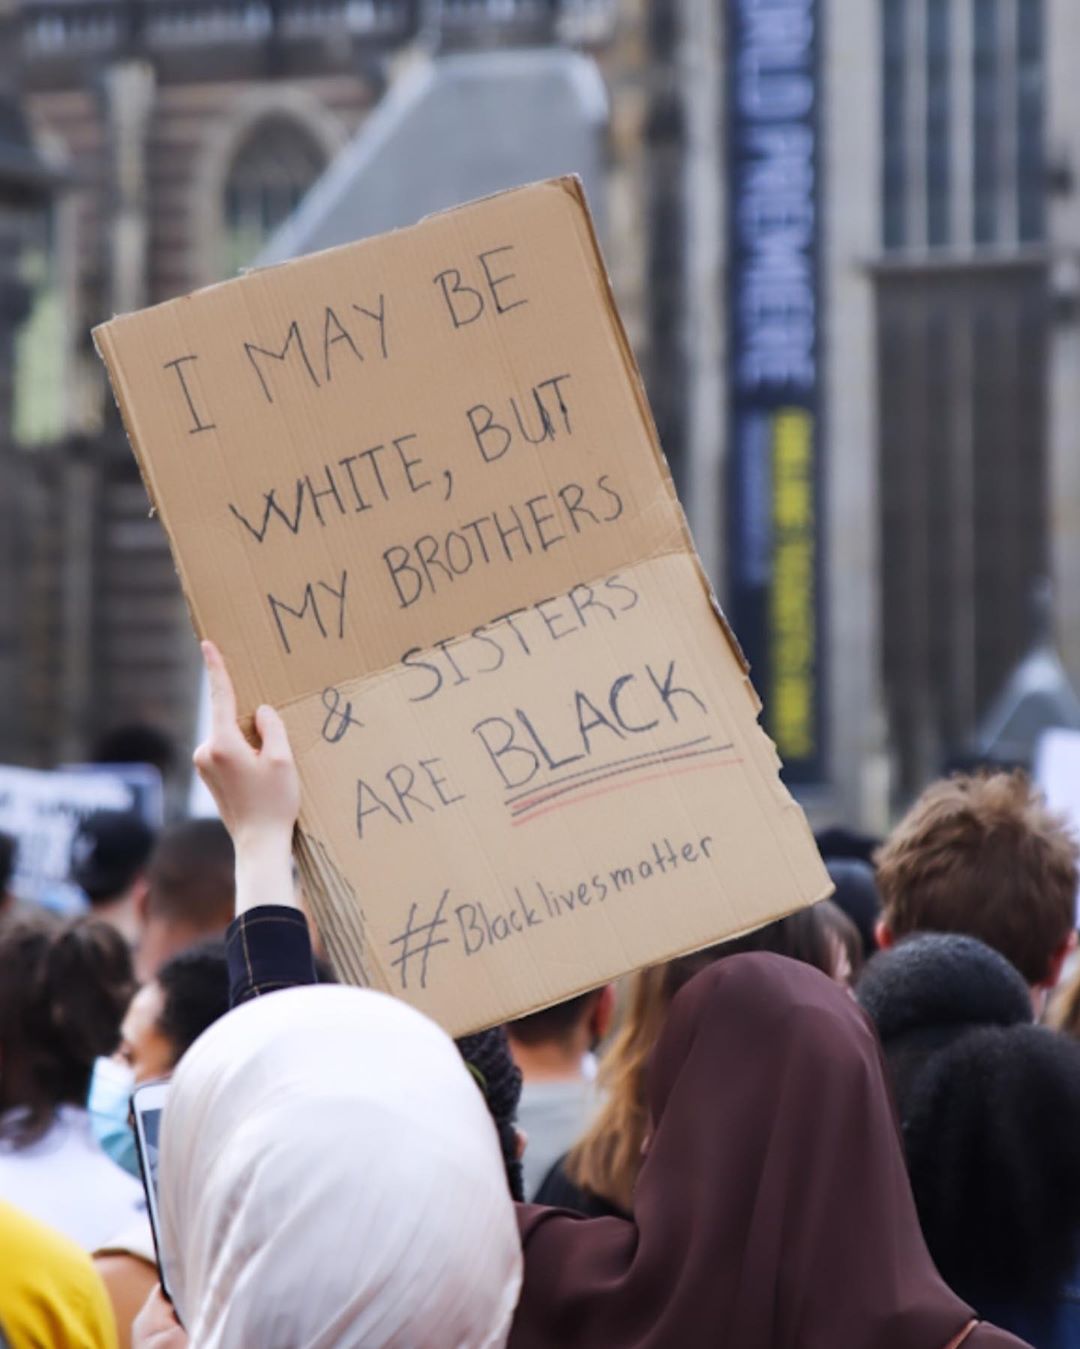 I MAY BE
WHITE, BUT
MY BROTHERS
& SISTERS
ARE BLACK
#Blacklivesmatter
WORLD PREMIERE